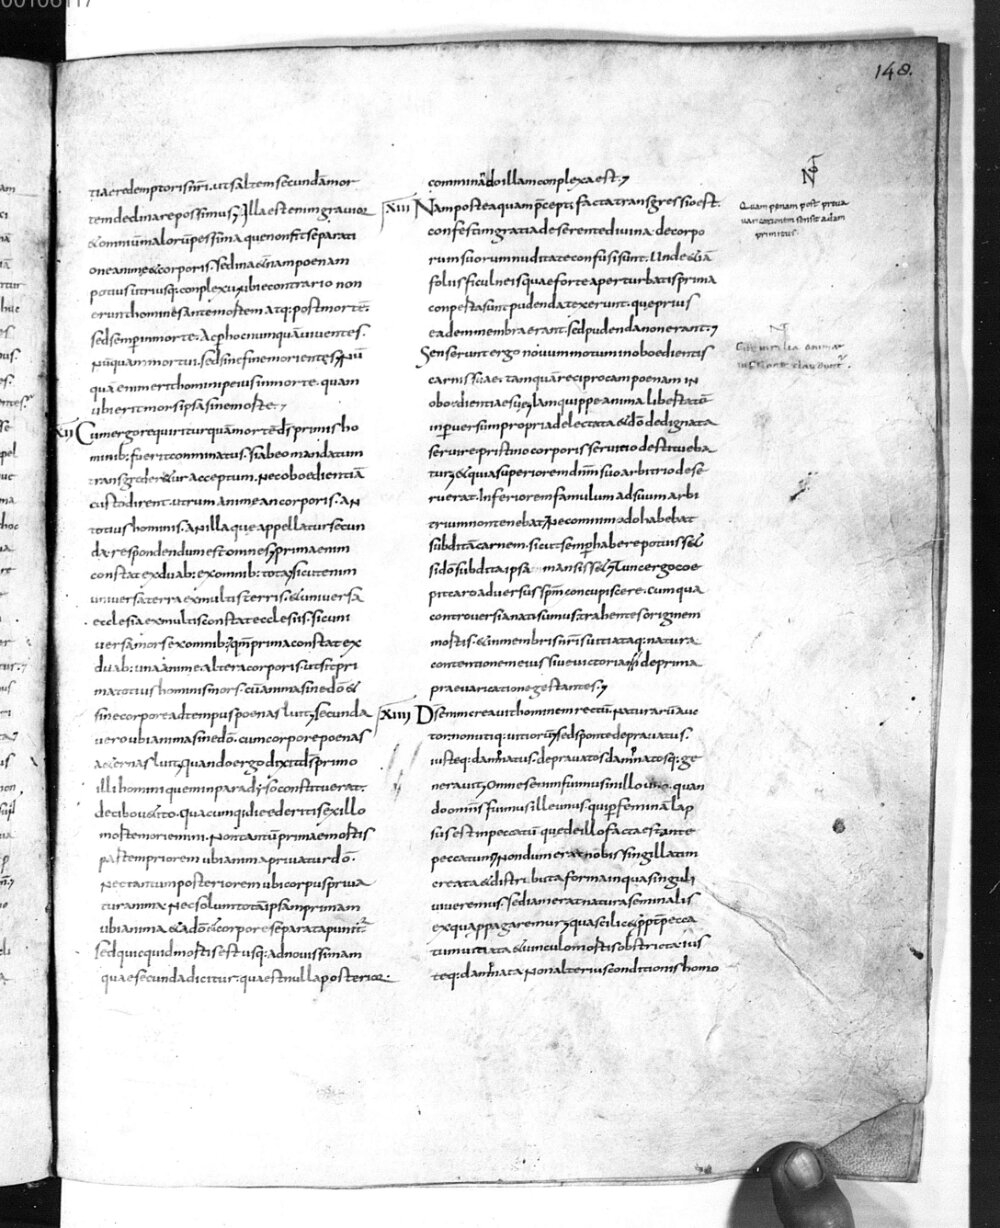 148.
tiae redemptoris nr̄i. ut saltem secundā mor
tem declinare possimus; Illa est enim gravior
& omniū malorū pessima. que non fit separati
one animę & corporis. sed in aet̄nam poenam
potius utriusq; conplexu; ibi e contrario non
erunt homines ante mortem atq; post mortē.
sed semper in morte. Ac p hoc numquā viventes.
nūquā mortui. sed sine fine morientes; Nū
quā enim erit homini peius in morte. quam
ubi erit mors ipsa sine morte;
XII Cum ergo requiritur quā mortē dš primis ho
minib; fuerit comminatus. si ab eo mandatum
transgrederentur acceptum. nec oboedientiā
custodirent. utrum animę an corporis. an
totius hominis. an illa que appellatur secun
da. respondendum est omnes; prima enim
constat ex duab; ex omnib; tota; sicut enim
universa terra ex multis terris. & universa
ecclesia ex multis constat ecclesiis. sic uni
versa mors ex omnib; qm̄ prima constat ex
duab; una animę altera corporis. ut sit pri
ma totius hominis mors. cū anima sine dō &
sine corpore ad tempus poenas luit; secunda
vero ubi anima sine dō. cum corpore poenas
aeternas luit; quando ergo dixit dš primo
illi homini quem in paradyso constituerat.
de cibo vetito. quacumq; die ederitis ex illo
morte moriemini. Non tantū primae mortis
partem priorem ubi anima privatur dō.
nec tantum posteriorem ubi corpus priva
tur anima. Nec solum totā ipsam primam
ubi anima & a dō & corpore separata punitur
sed quicquid mortis est usq; ad novissimam
quae secunda dicitur. qua est nulla posterior.
comminādo illam conplexa est;
XIII Nam postea quam p̄cepti facta transgressio est.
confestim gratia deserente divina. de corpo
rum suorum nuditate confusi sunt. Unde & iā
foliis ficulneis quae forte a perturbatis prima
conperta sunt pudenda texerunt. que prius
eadem membra erant. sed pudenda non erant;
Senserunt ergo novum motum inoboedientis
carnis suae. tamquā reciprocam poenam in
oboedientiae suę; Iam quippe anima libertatē
in perversum propria delectata & dō dedignata
servire. pristino corporis servitio destitueba
tur; & quia superiorem dnm̄ suo arbitrio dese
ruerat. Inferiorem famulum ad suum arbi
trium non tenebat; Nec omnimodo habebat
subditā carnem. sicut semp̄ habere potuisset
si dō subdita ipsa mansisset; Tunc ergo coe
pit caro adversus sp̄m concupiscere. cum qua
controversia nati sumus. trahentes originem
mortis. & in membris nr̄is vitiataq; natura
contentionem eius sive victoria de prima
praevaricatione gestantes;
XIIII Dš enim creavit hominem rectū. naturarū auc
tor non utiq; vitiorū; sed sponte depravatus.
iusteq; damnatus. depravatos damnatosq; ge
neravit; Omnes enim fuimus in illo uno. quan
do omn̄s fuimus ille unus. qui p feminā lap
sus est in peccatū. que de illo facta est ante
peccatum; Nondum erat nobis singillatim
creata & distributa forma in qua singuli
viveremus. sed iam erat natura seminalis
ex qua ppagaremur; qua scilic& ppt̄ pecca
tum vitiata & vinculo mortis obstricta. ius
teq; damnata. non alterius conditionis homo
Quam penam post preva
varicationem senserit adam
primitus.